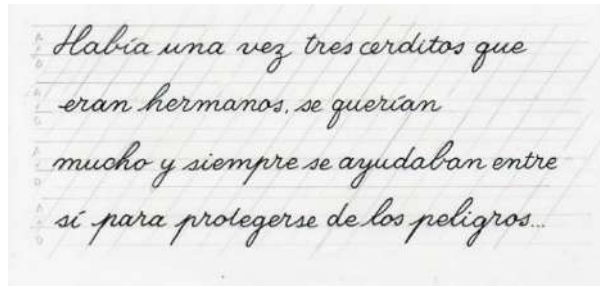 Había una vez tres cerditos que
eran hermanos, se querían
mucho y siempre se ayudaban entre
sí para protegerse de los peligros...